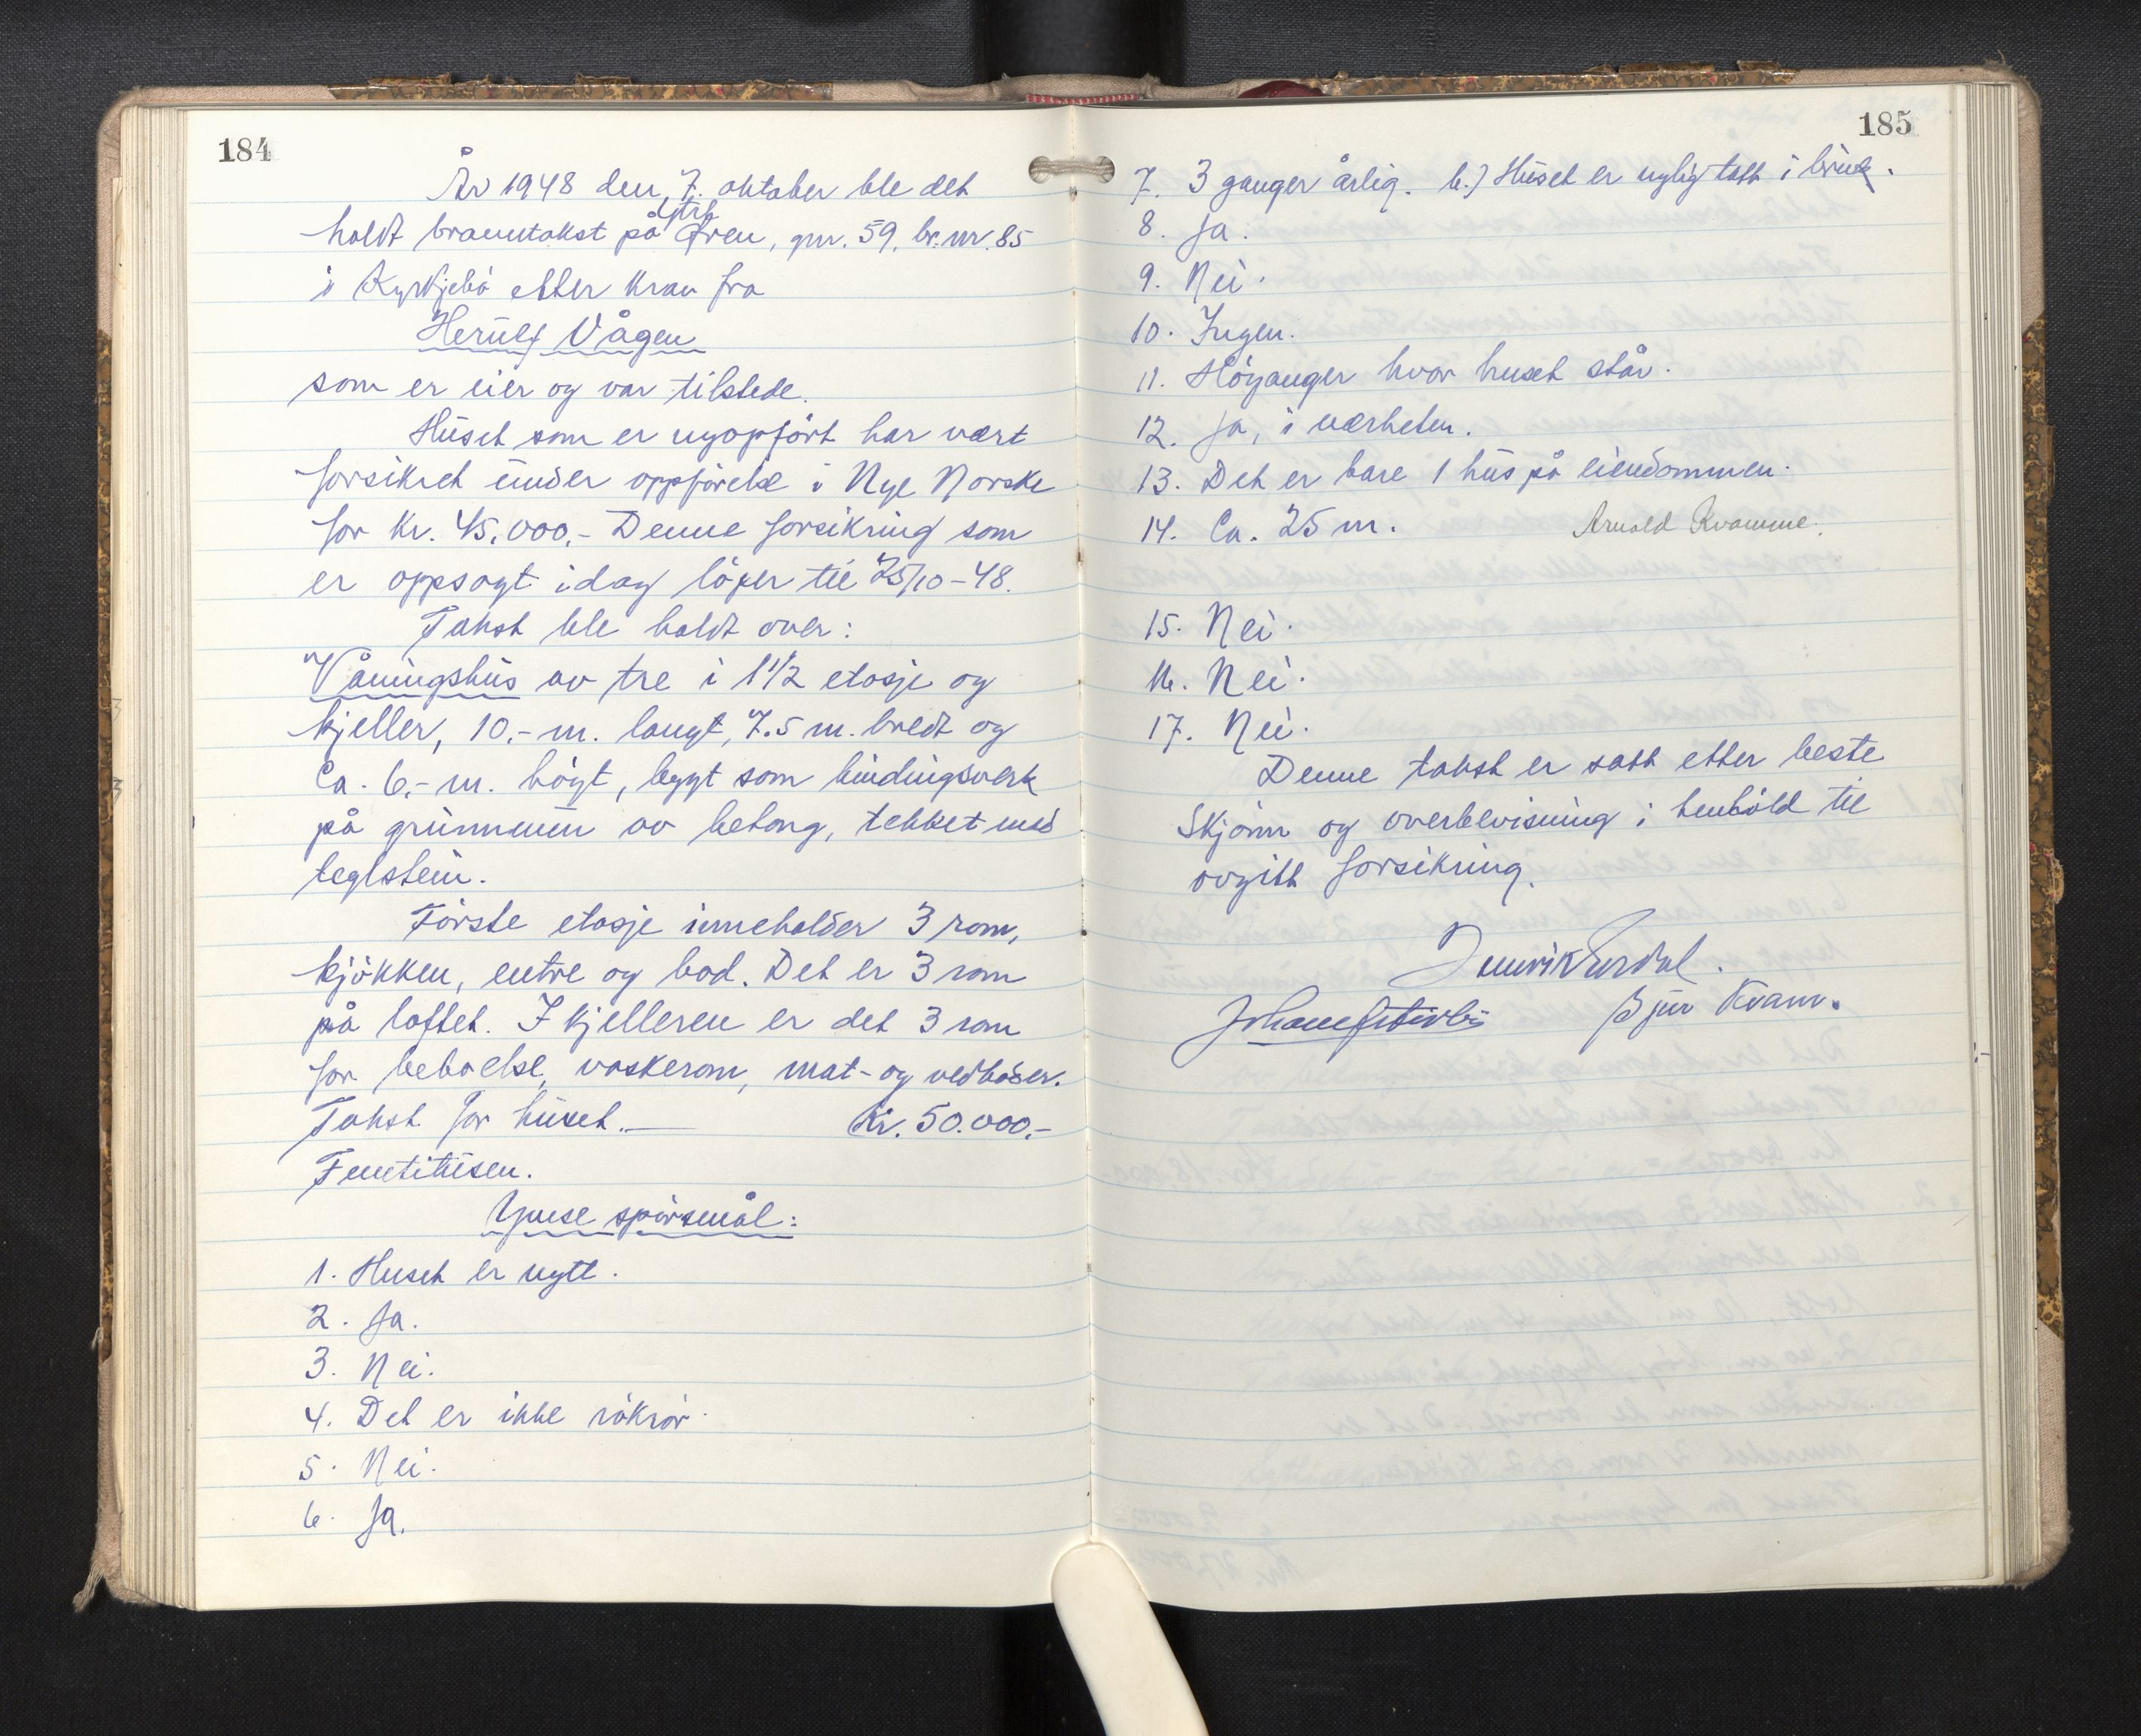 184
År 1948 den 7. oktober ble det
holdt branntakst på Ytre Øren, gnr. 59, br.nr. 85
i Kyrkjebö etter krav fra
Herulf Vågen
som er eier og var tilstede.
Huset som er nyoppfört har vært
forsikret under oppförelse i Nye Norske
for kr. 45.000,- Denne forsikring som
er oppsagt idag löper til 25/10-48.
Takst ble holdt over:
Våningshus av tre i 1 1/2 etasje og
kjeller, 10,- m. langt, 7.5 m. bredt og
Ca. 6,- m. högt, bygt som bindingsverk
på grunnmur av betong, tekket med
teglstein.
Förste etasje inneholder 3 rom,
kjökken, entre og bad. Det er 3 rom
på loftet. I kjelleren er det 3 rom
for beboelse, vaskerom, mat- og vedboder.
Takst for huset. — Kr. 50.000,-
Femtitusen.
Ymse spörsmål:
1. Huset er nytt.
2. Ja.
3. Nei.
4. Det er ikke rökrör.
5. Nei.
6. Ja.
185
7. 3 ganger årlig. b.) Huset er nylig tatt i bruk.
8. Ja.
9. Nei.
10. Ingen.
11. Höyanger hvor huset står.
12. Ja, i nærheten.
13. Det er bare 1 hus på eiendommen.
14. Ca. 25 m. Arnold Kvamme.
15. Nei.
16. Nei.
17. Nei.
Denne takst er satt etter beste
Skjönn og overbevisning i henhold til
avgitt forsikring.
Kvam.